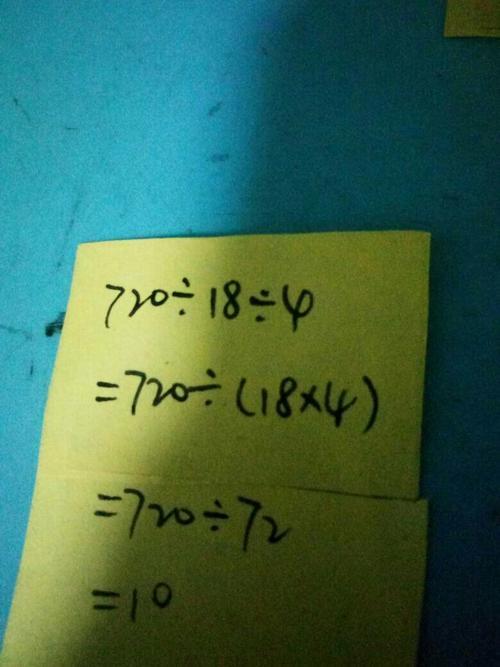 720÷18÷4
=720÷(18×4)
=720÷72
=10